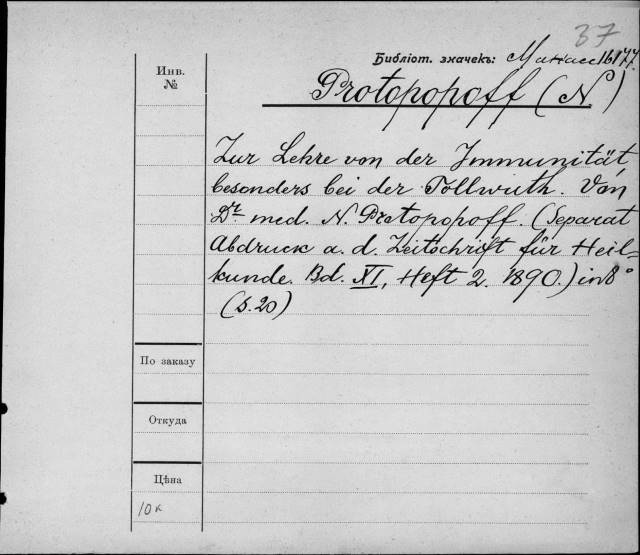 37
Библіот. значекъ: Манасс 16177.
Инв.
№
Protopopoff (N.)
Zur Lehre von der Immunität
besonders bei der Tollwuth. Von
Dr med. N. Protopopoff. (Separat
Abdruck a. d. Zeitschrift für Heil-
kunde. Bd. XI, Heft 2. 1890.) in 8°
(S. 20)
По заказу
Откуда
Цѣна
10 к